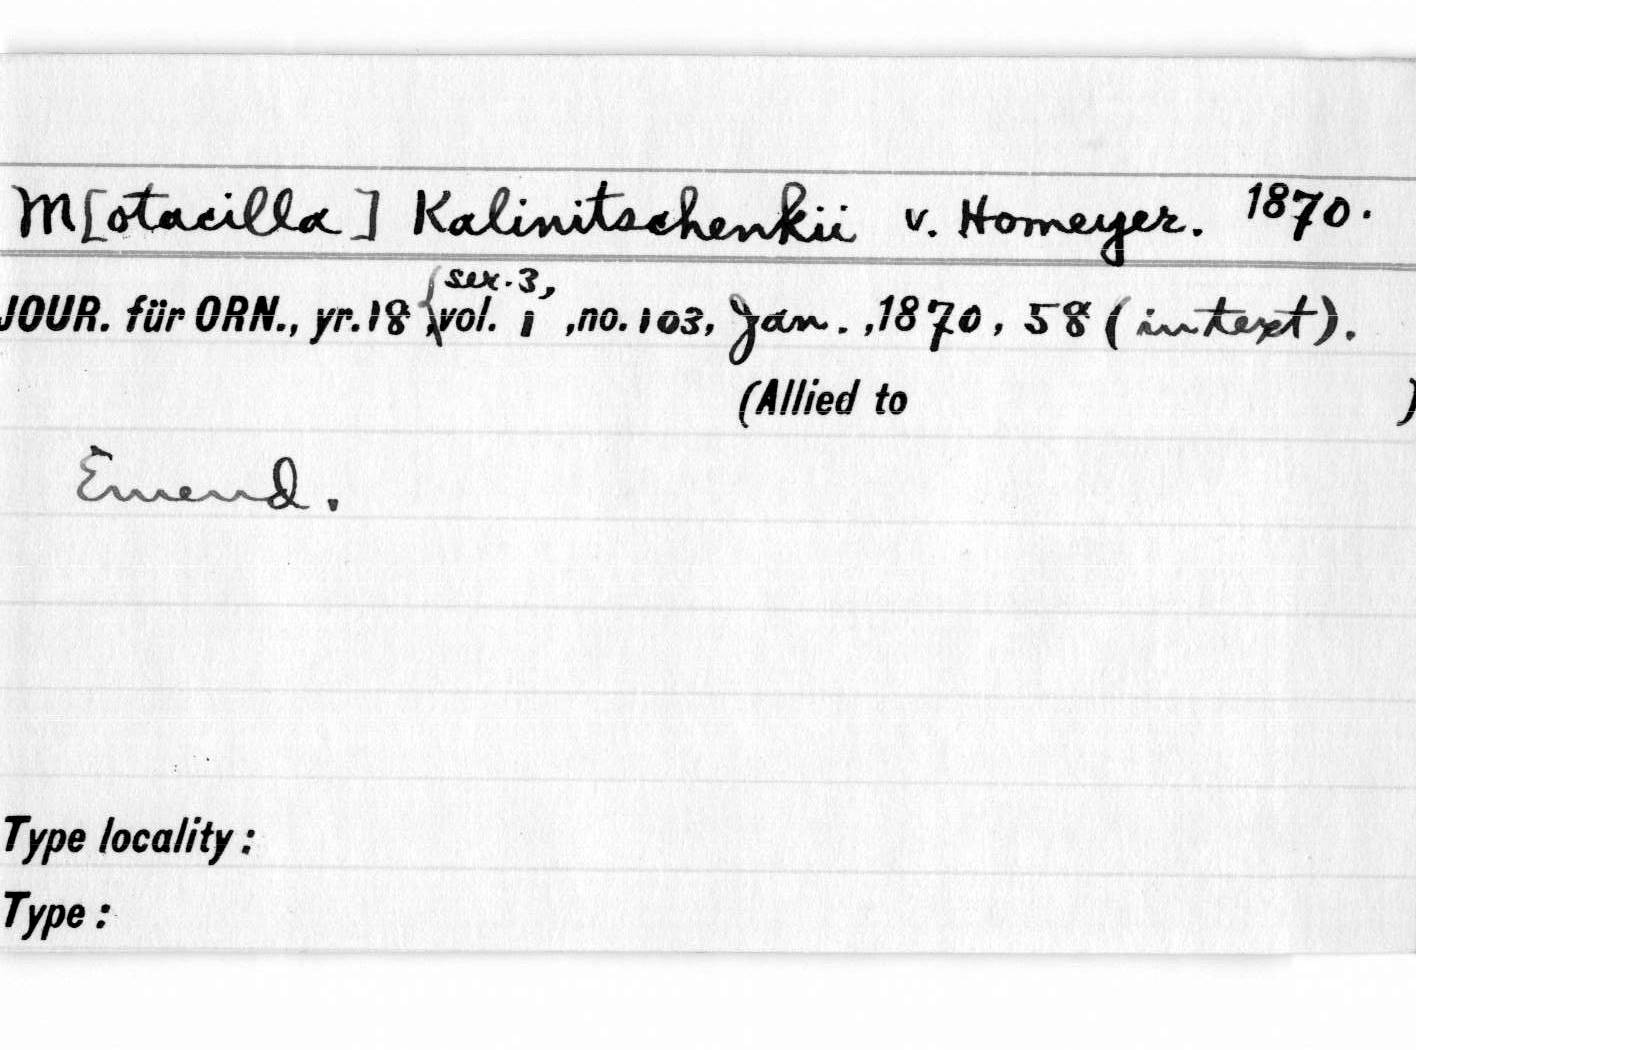 M[otacilla] Kalinitschenkii v. Homeyer. 1870.
ser. 3,
JOUR. für ORN., yr. 18 { vol. 1 , no. 103, Jan. , 1870, 58 (in text).
(Allied to )
Emend.
Type locality :
Type :